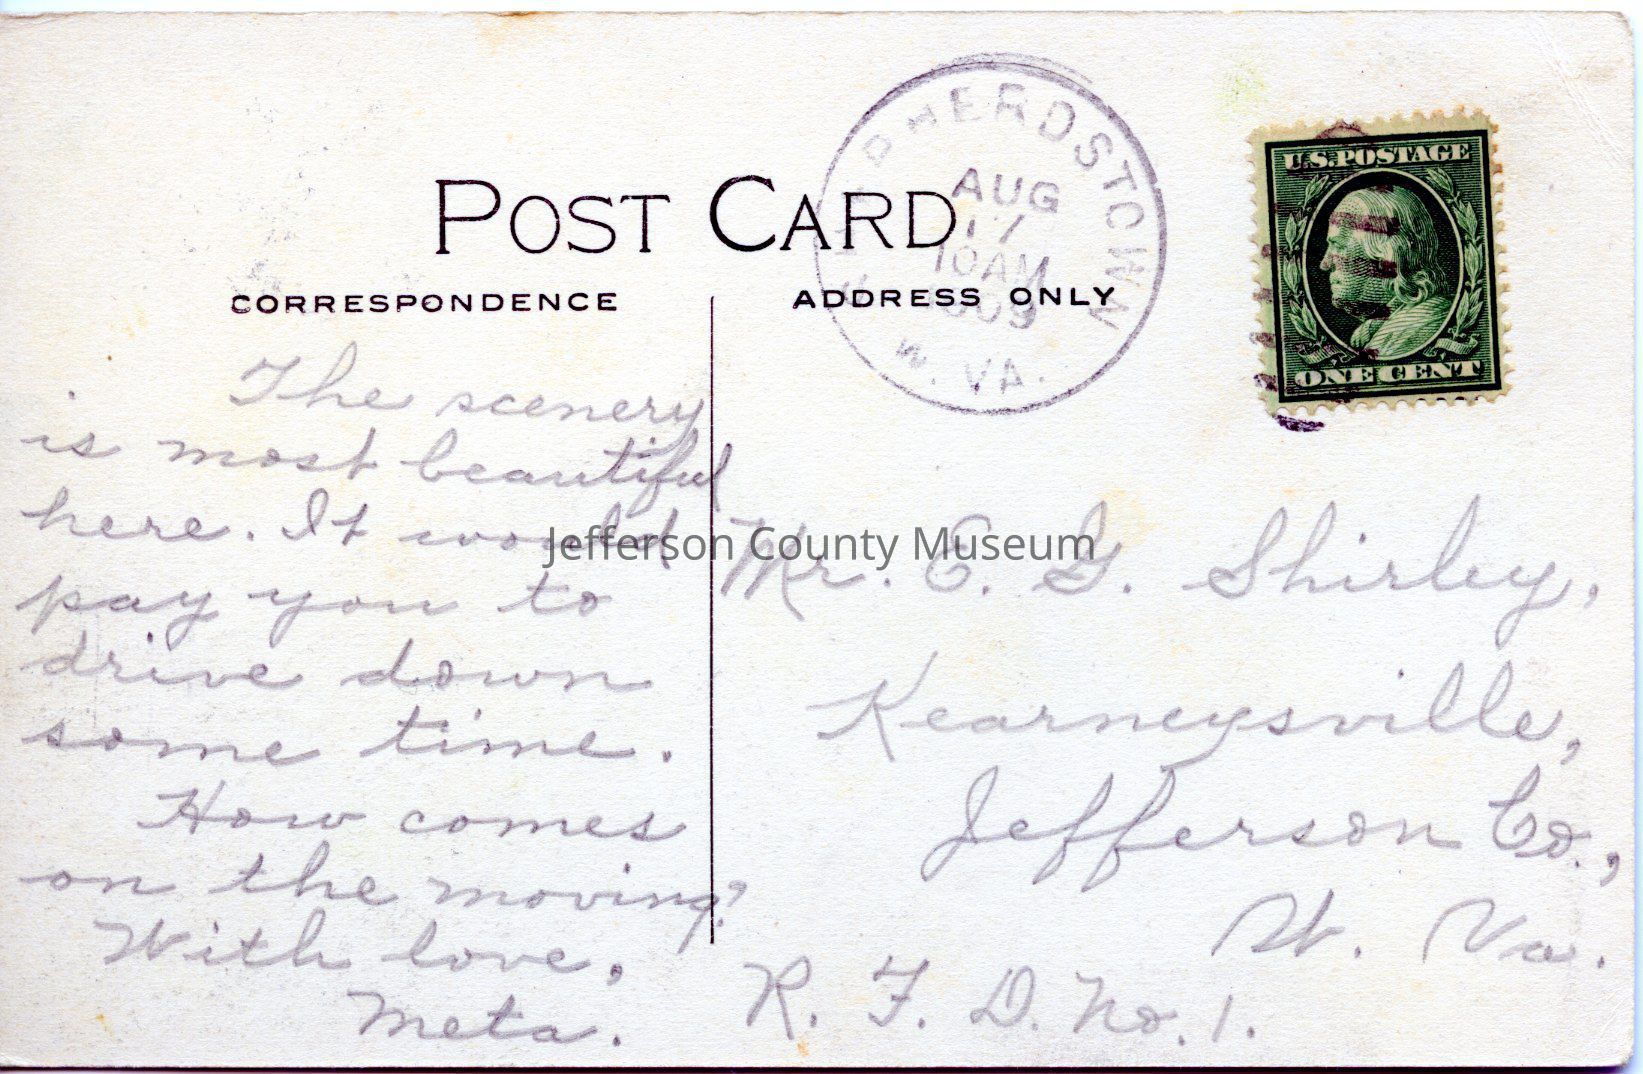 POST CARD
CORRESPONDENCE
ADDRESS ONLY
HERDSTOWN
AUG
10 AM
W. VA.
U.S. POSTAGE
ONE CENT
The scenery
is most beautiful
here. It would
pay you to
drive down
some time.
How comes
on the moving?
With love,
Meta.
Mr. E. G. Shirley,
Kearneysville,
Jefferson Co.,
W. Va.
R. F. D. No. 1.
Jefferson County Museum